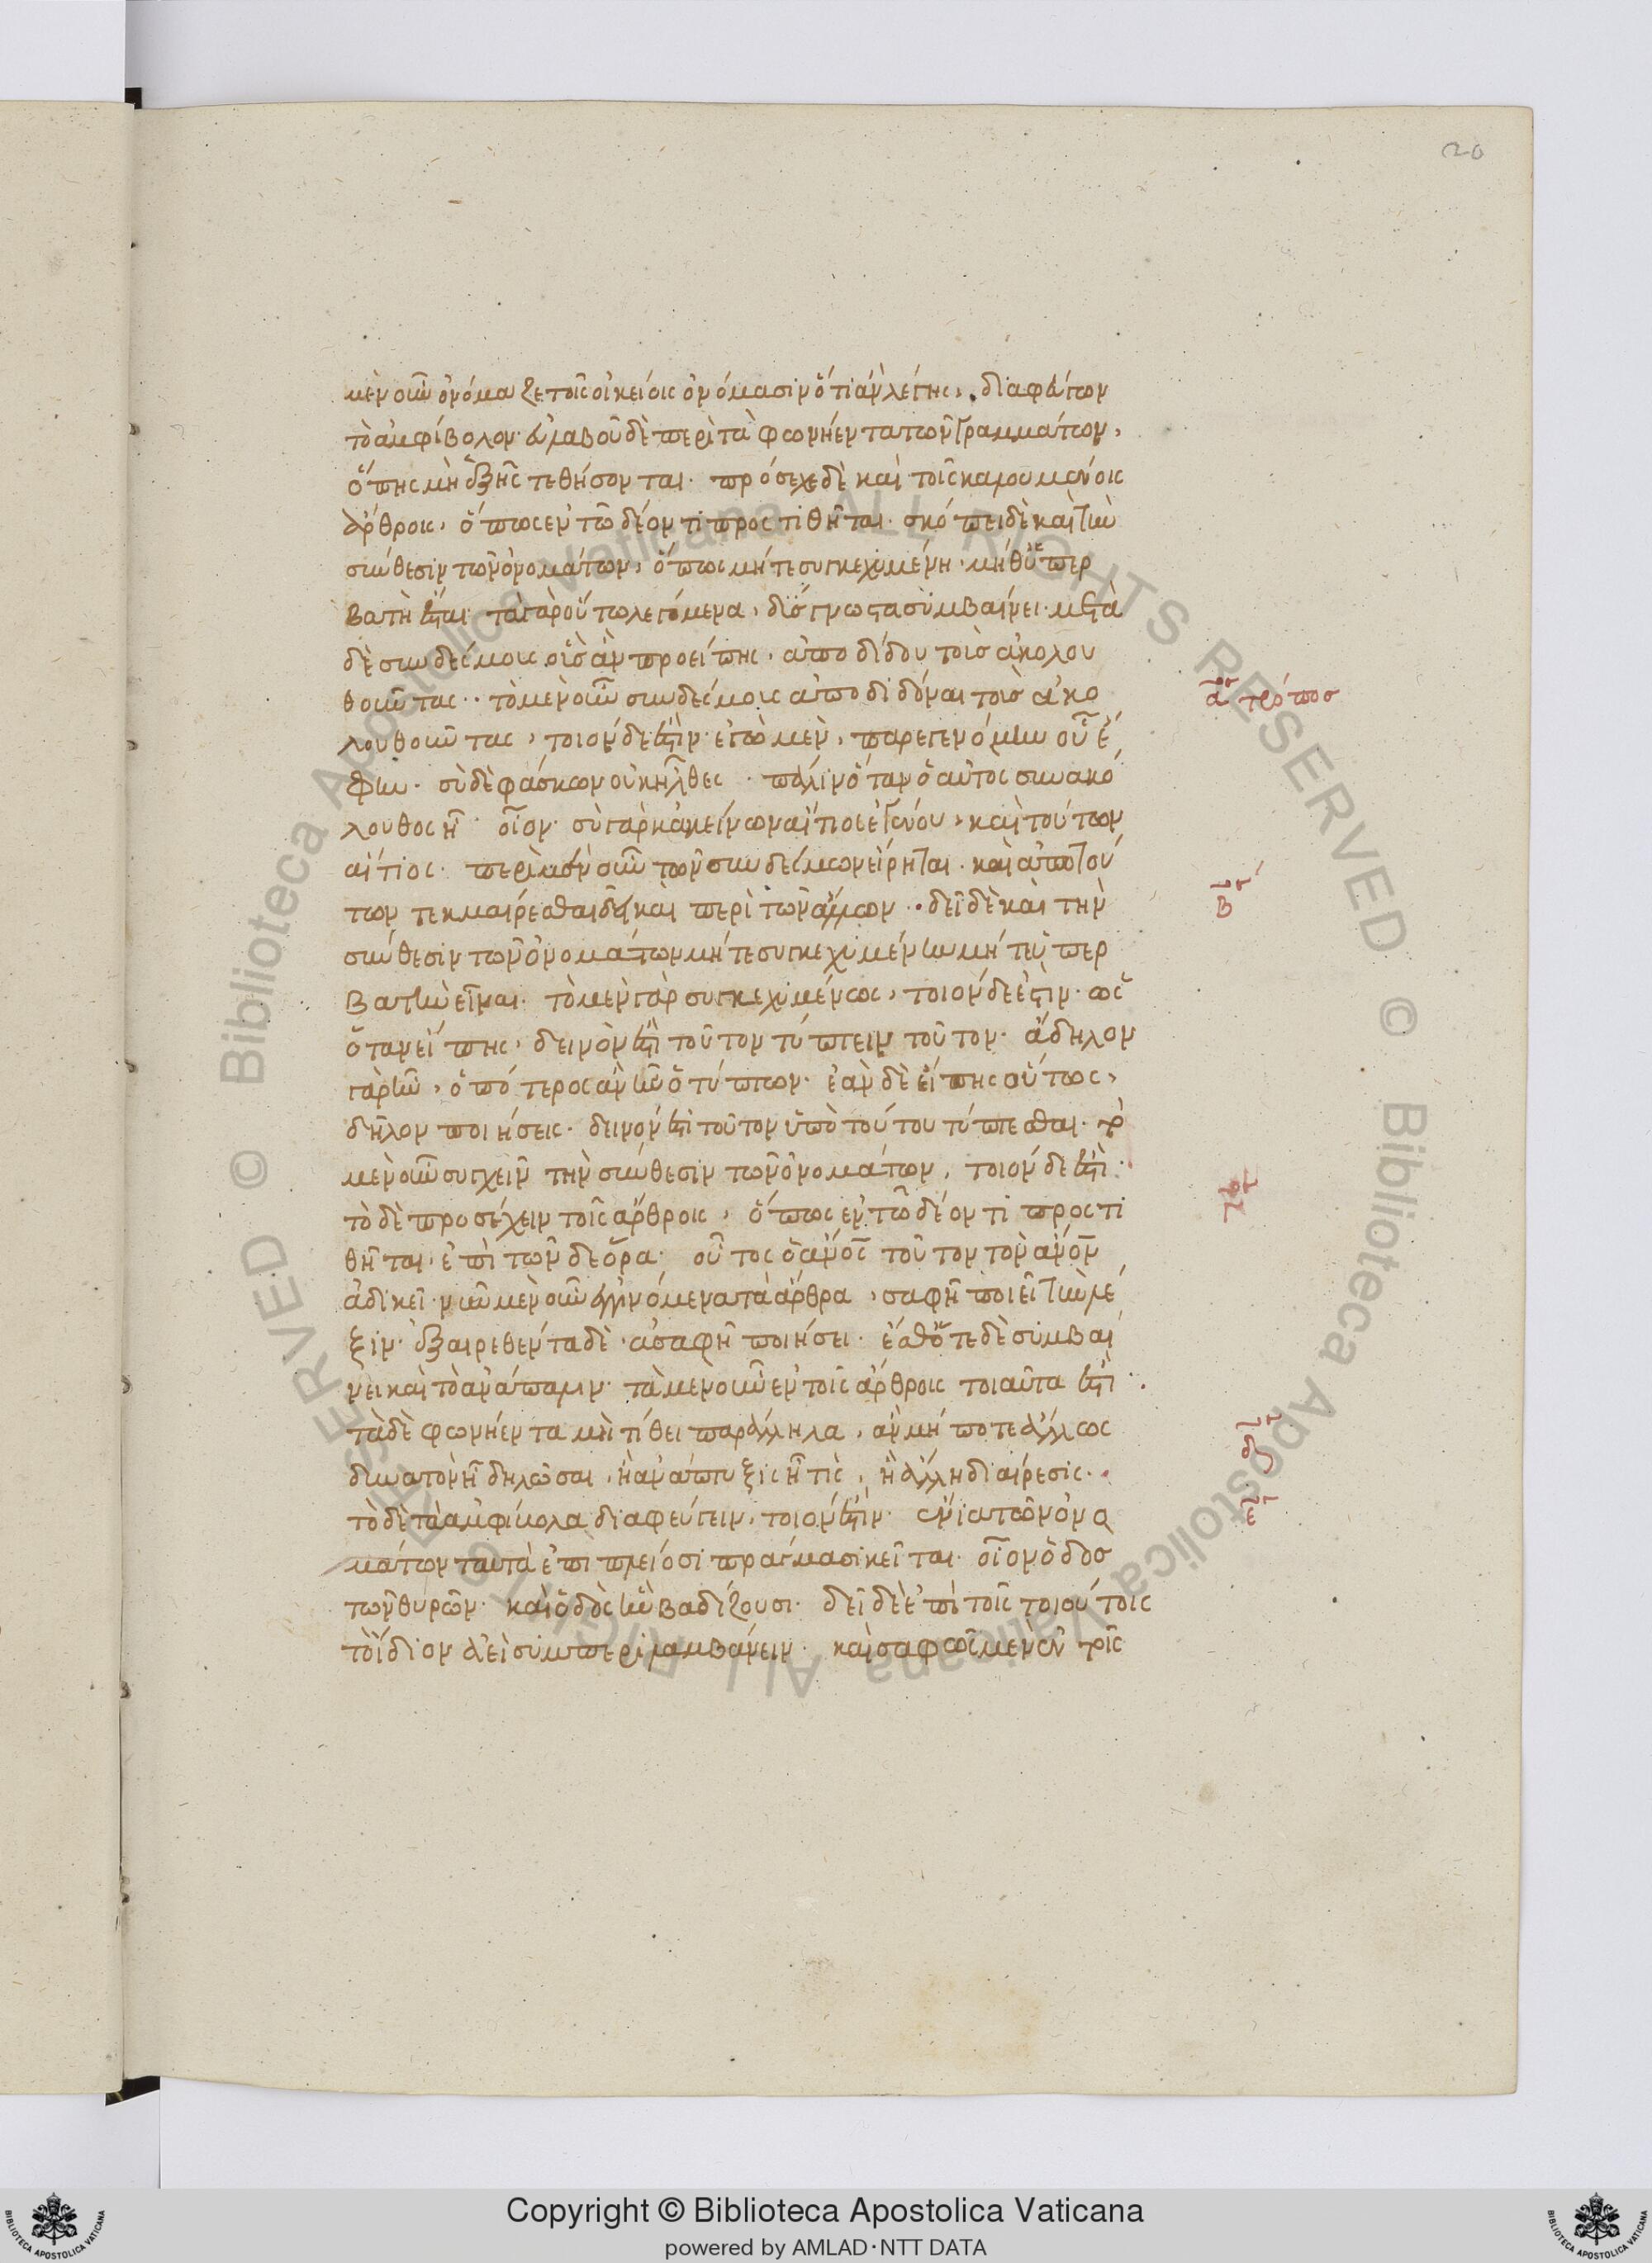 20
μὲν οὖν ὀνόμαζε τοῖς οἰκείοις ὀνόμασιν ὅτι ἂν λέγῃς, διαφεύγων
τὸ ἀμφίβολον· εὐλαβοῦ δὲ περὶ τὰ φωνήεντα τῶν γραμμάτων,
ὅπης μὴ ἑξῆς τεθήσονται. πρόσεχε δὲ καὶ τοῖς καλουμένοις
ἄρθροις, ὅπως ἐν τῷ δέοντι προστιθῆται. σκόπει δὲ καὶ τὴν
σύνθεσιν τῶν ὀνομάτων, ὅπως μήτε συγκεχυμένη μήθ' ὑπερ
βατὴ ἔσται· τὰ γὰρ οὕτω λεγόμενα, δύσγνωστα συμβαίνει. μετὰ
δὲ συνδέσμους οἷς ἂν προείπης, ἀποδίδου τοὺς ἀκολου
θοῦντας. τὸ μὲν οὖν συνδέσμοις ἀποδιδόναι τοὺς ἀκο
λουθοῦντας, τοιόνδε ἐστίν· ἐγὼ μὲν, παρεγενόμην οὗ ἔ
φην· σὺ δὲ φάσκων οὐκ ἦλθες. πάλιν ὅταν ὁ αὐτὸς συνακό
λουθος ᾖ· οἷον· σὺ γὰρ κἀκείνων αἴτιος ἐγένου, καὶ τούτων
αἴτιος. περὶ μὲν οὖν τῶν συνδέσμων εἴρηται. καὶ ἀπὸ τού
των τεκμαίρεσθαι δεῖ καὶ περὶ τῶν ἄλλων. δεῖ δὲ καὶ τὴν
σύνθεσιν τῶν ὀνομάτων μήτε συγκεχυμένην μήτε ὑπερ
βατὴν εἶναι. τὸ μὲν γὰρ συγκεχυμένως, τοιόνδε ἐστιν. ὡς
ὅταν εἴπης, δεινόν ἐστι τοῦτον τύπτειν τοῦτον· ἄδηλον
γὰρ ἦν, ὁπότερος ἂν ἦν ὁ τύπτων· ἐὰν δὲ εἴπης οὕτως,
δῆλον ποιήσεις· δεινόν ἐστι τοῦτον ὑπὸ τούτου τύπτεσθαι. τὸ
μὲν οὖν συγχεῖν τὴν σύνθεσιν τῶν ὀνομάτων, τοιόνδε ἐστί·
τὸ δὲ προσέχειν τοῖς ἄρθροις, ὅπως ἐν τῷ δέοντι προστι
θῆται, ἐπὶ τῶνδε ὅρα· οὗτος ὁ ἄνος τοῦτον τὸν ἄνον
ἀδικεῖ· νῦν μὲν οὖν ἐγγινόμενα τὰ ἄρθρα, σαφῆ ποιεῖ τὴν λέ
ξιν· ἐξαιρεθέντα δὲ ἀσαφῆ ποιήσει. ἔσθ' ὅτε δὲ συμβαί
νει καὶ τὸ ἀνάπαλιν· τὰ μὲν οὖν ἐν τοῖς ἄρθροις τοιαῦτα ἐστί.
τὰ δὲ φωνήεντα μὴ τίθει παράλληλα, ἂν μή ποτε ἄλλως
δυνατὸν ᾖ δηλῶσαι, ἢ ἀνάπτυξις ᾖ τὶς, ἢ ἄλλη διαίρεσις.
τὸ δὲ τὰ ἀμφίκολα διαφεύγειν, τοιόν ἐστίν· ἔνια τῶν ὀνο
μάτων ταυτὰ ἐπὶ πλείοσι πράγμασι κεῖται· οἷον ὁδὸς
τῶν θυρῶν· καὶ ὁδὸς ἣν βαδίζουσι. δεῖ δὲ ἐπὶ τοῖς τοιούτοις
τὸ ἴδιον ἀεὶ συμπεριλαμβάνειν. καὶ σαφῶς μὲν ἐν τοῖς
αος τρόπος
Copyright © Biblioteca Apostolica Vaticana
powered by AMLAD·NTT DATA